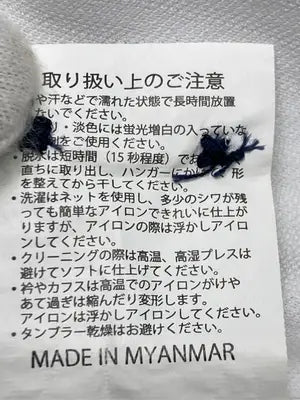 取り扱い上のご注意
や汗などで濡れた状態で長時間放置
ないでください。
り・淡色には蛍光増白の入っていな
をご使用ください。
・脱水は短時間（15秒程度）でお
直ちに取り出し、ハンガーにか 形
を整えてから干してください。
・洗濯はネットを使用し、多少のシワが残
っても簡単なアイロンできれいに仕上が
りますが、アイロンの際は浮かしアイロ
ンしてください。
・クリーニングの際は高温、高湿プレスは
避けてソフトに仕上げてください。
・衿やカフスは高温でのアイロンがけや
あて過ぎは縮んだり変形します。
アイロンは浮かしアイロンしてください。
・タンブラー乾燥はお避けください。
MADE IN MYANMAR